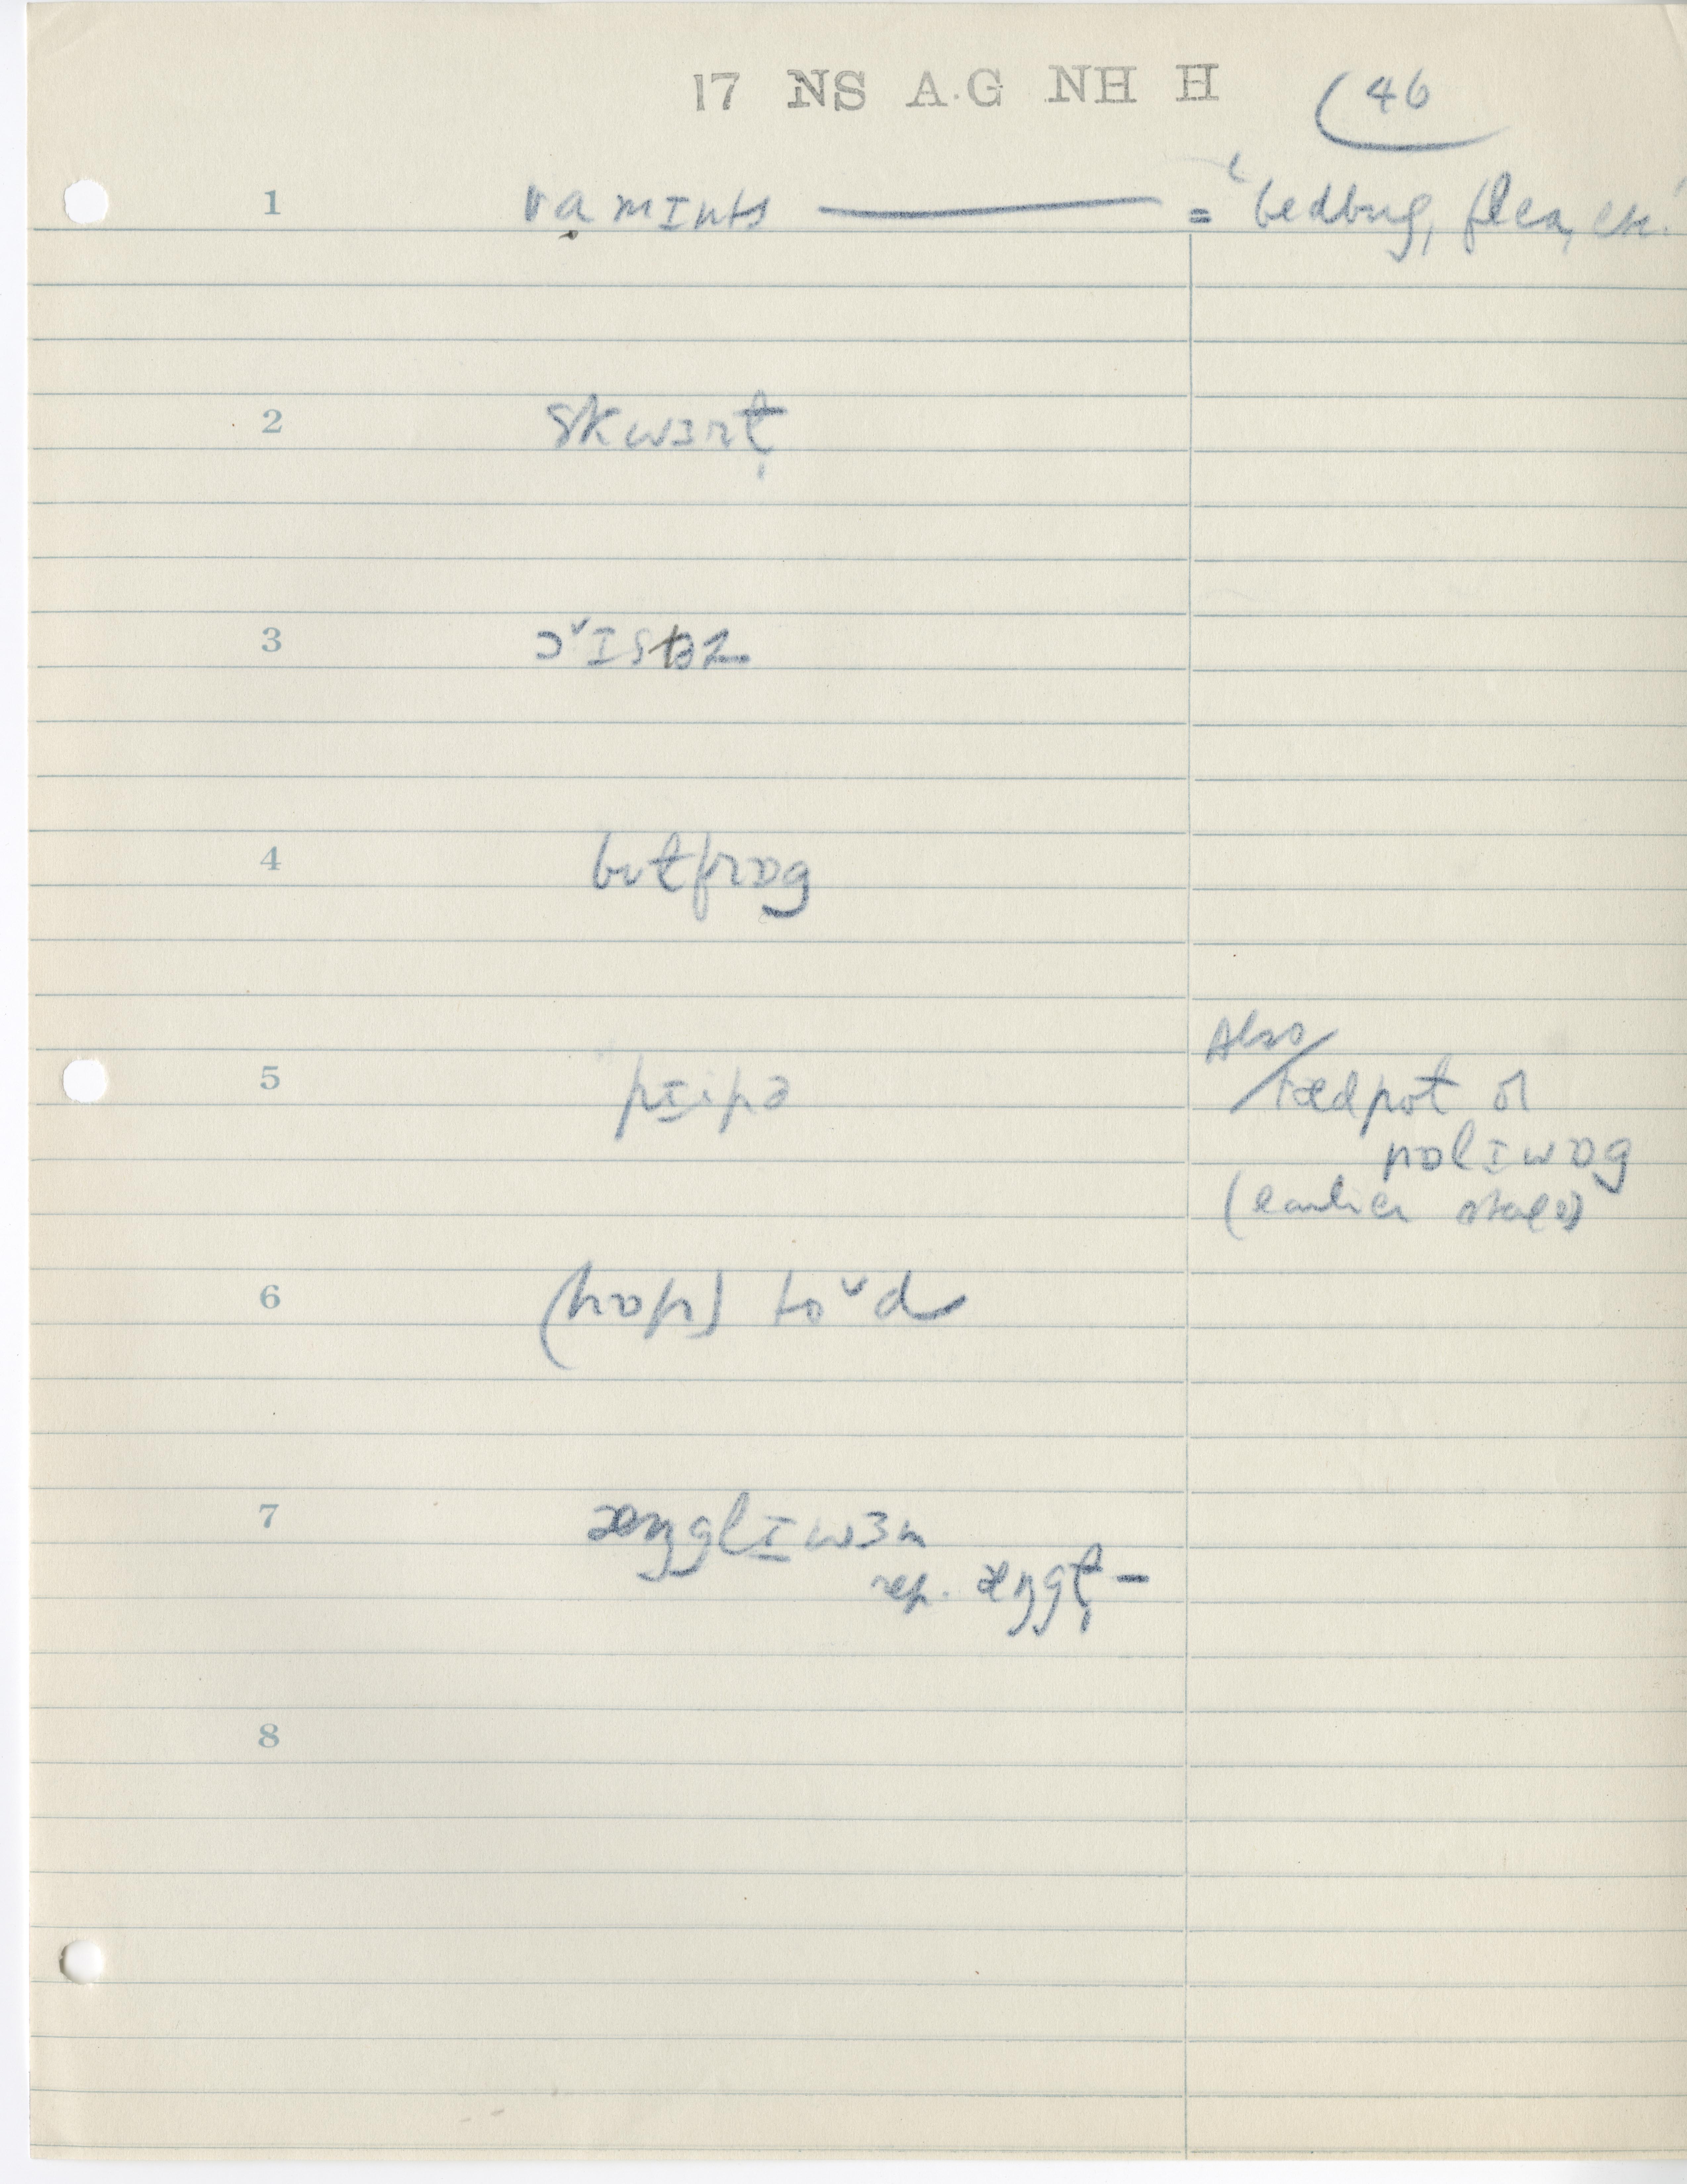 17 NS A.G NH H
46
1 vạmɪnts — = ‘bedbug, flea, etc.’
2 skwɜrɫ̣
3 ɔˇɪstɚz
4 bʊɫfrɒg
5 pɪipə
Also
tædpoɫ or
pɒlɪwɒg
(earlier stages)
6 (hɒp) toˇd
7 æŋglɪwɜm
rep. æŋgɫ̩ -
8